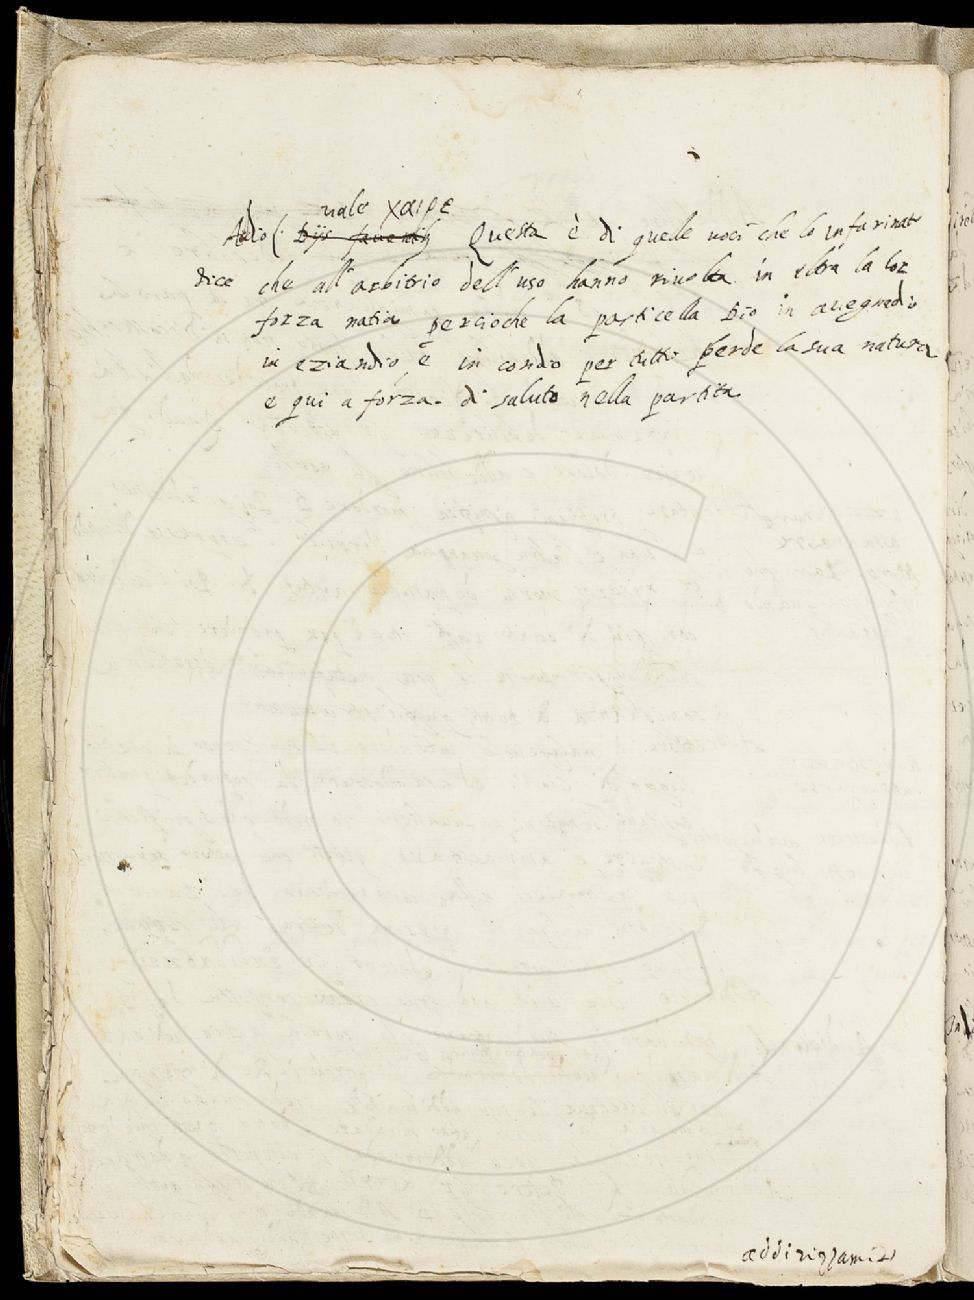 vale χαιρε
Adio (. Dijs fauentib Questa è di quelle uoci che lo infarinato
dice che all'arbitrio dell'uso hanno riuolta in altra la lor
forza natia percioche la particella Dio in auegnadio
in eziandio e in condio per tutto perde la sua natura
e qui a forza di saluto nella partita.
addirizzami